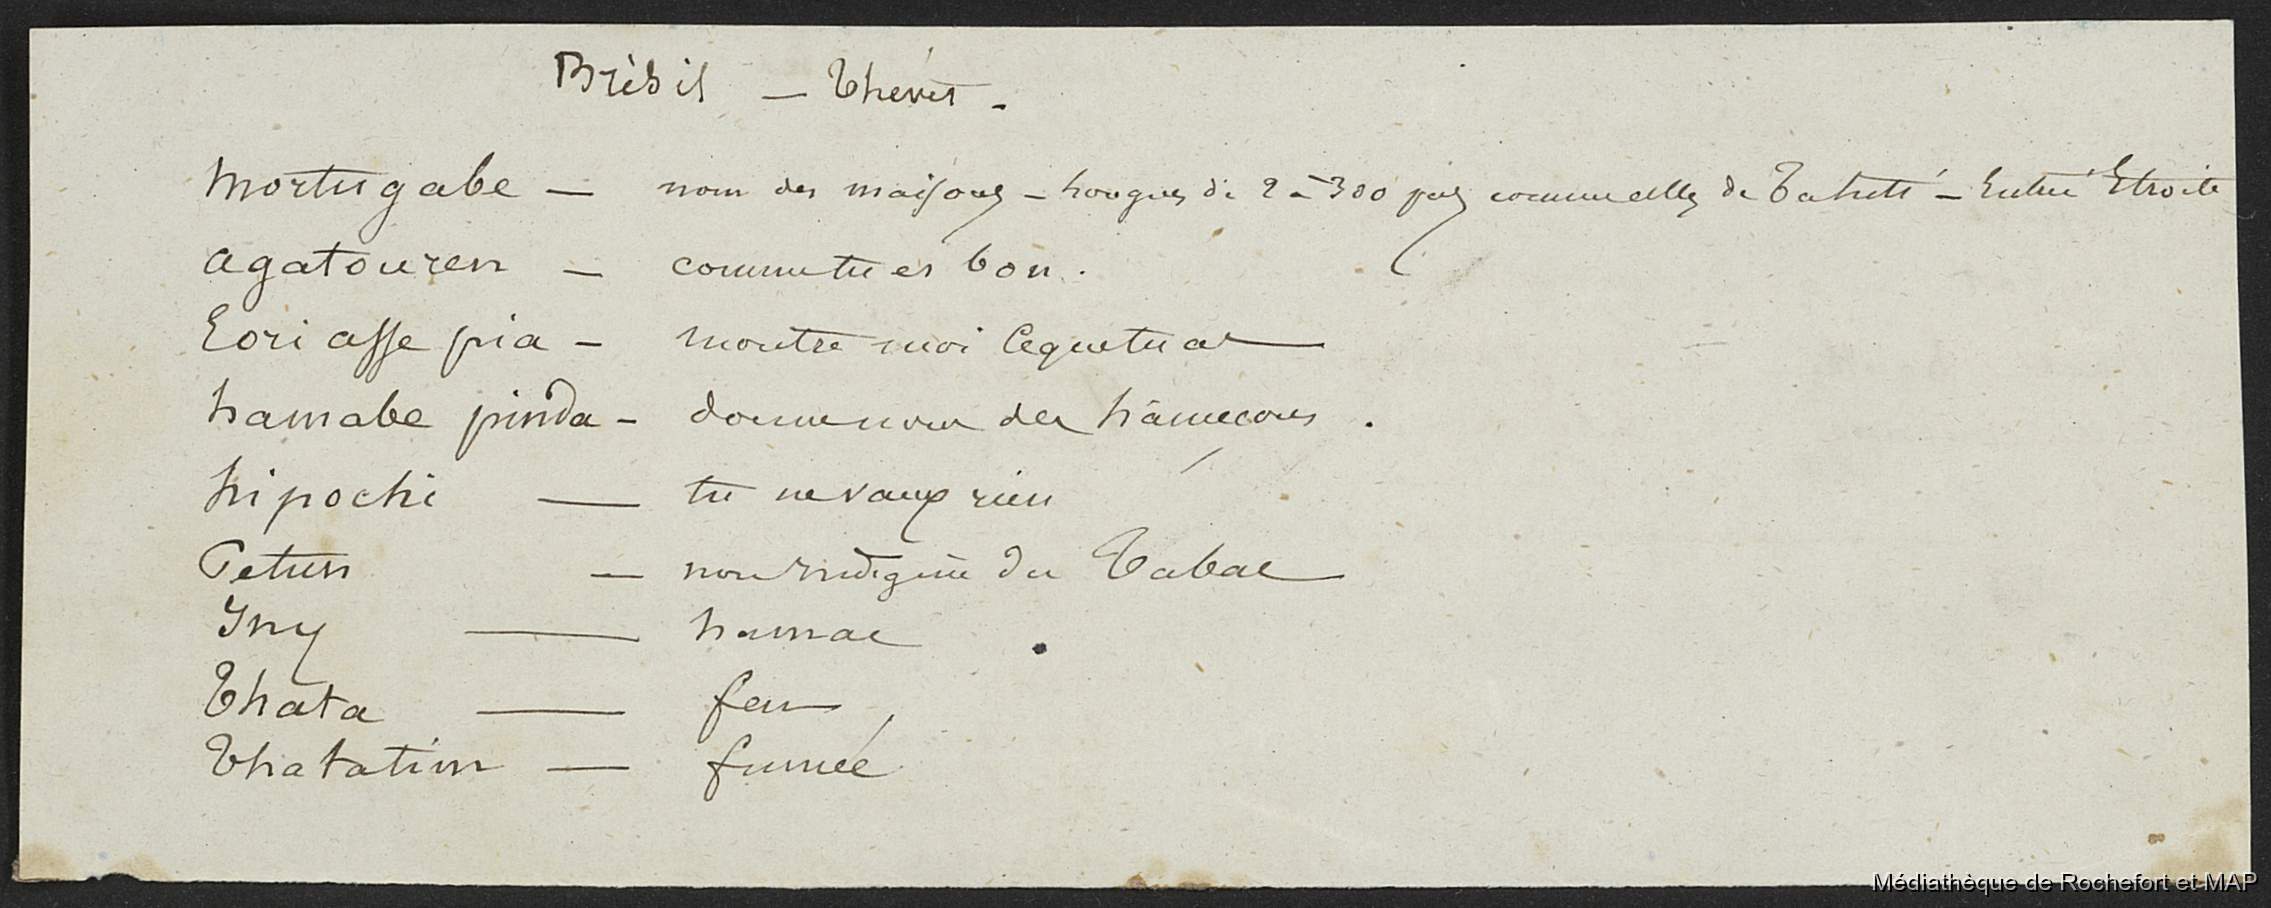 Brèsil — Thévet -
Mortugabe — nom des maisons - longues de 2 à 300 pas comme celles de Tahiti - Entrée Etroite
agatouren — comme tu es bon.
Eori asse pia - montre moi ce que tu as
hamabe pinda - donne nous des hameçons.
hipochi — tu ne vaux rien
Petun — nom indigène du Tabac
Iny — hamac
Thata — feu
Thatatin — fumée
Médiathèque de Rochefort et MAP